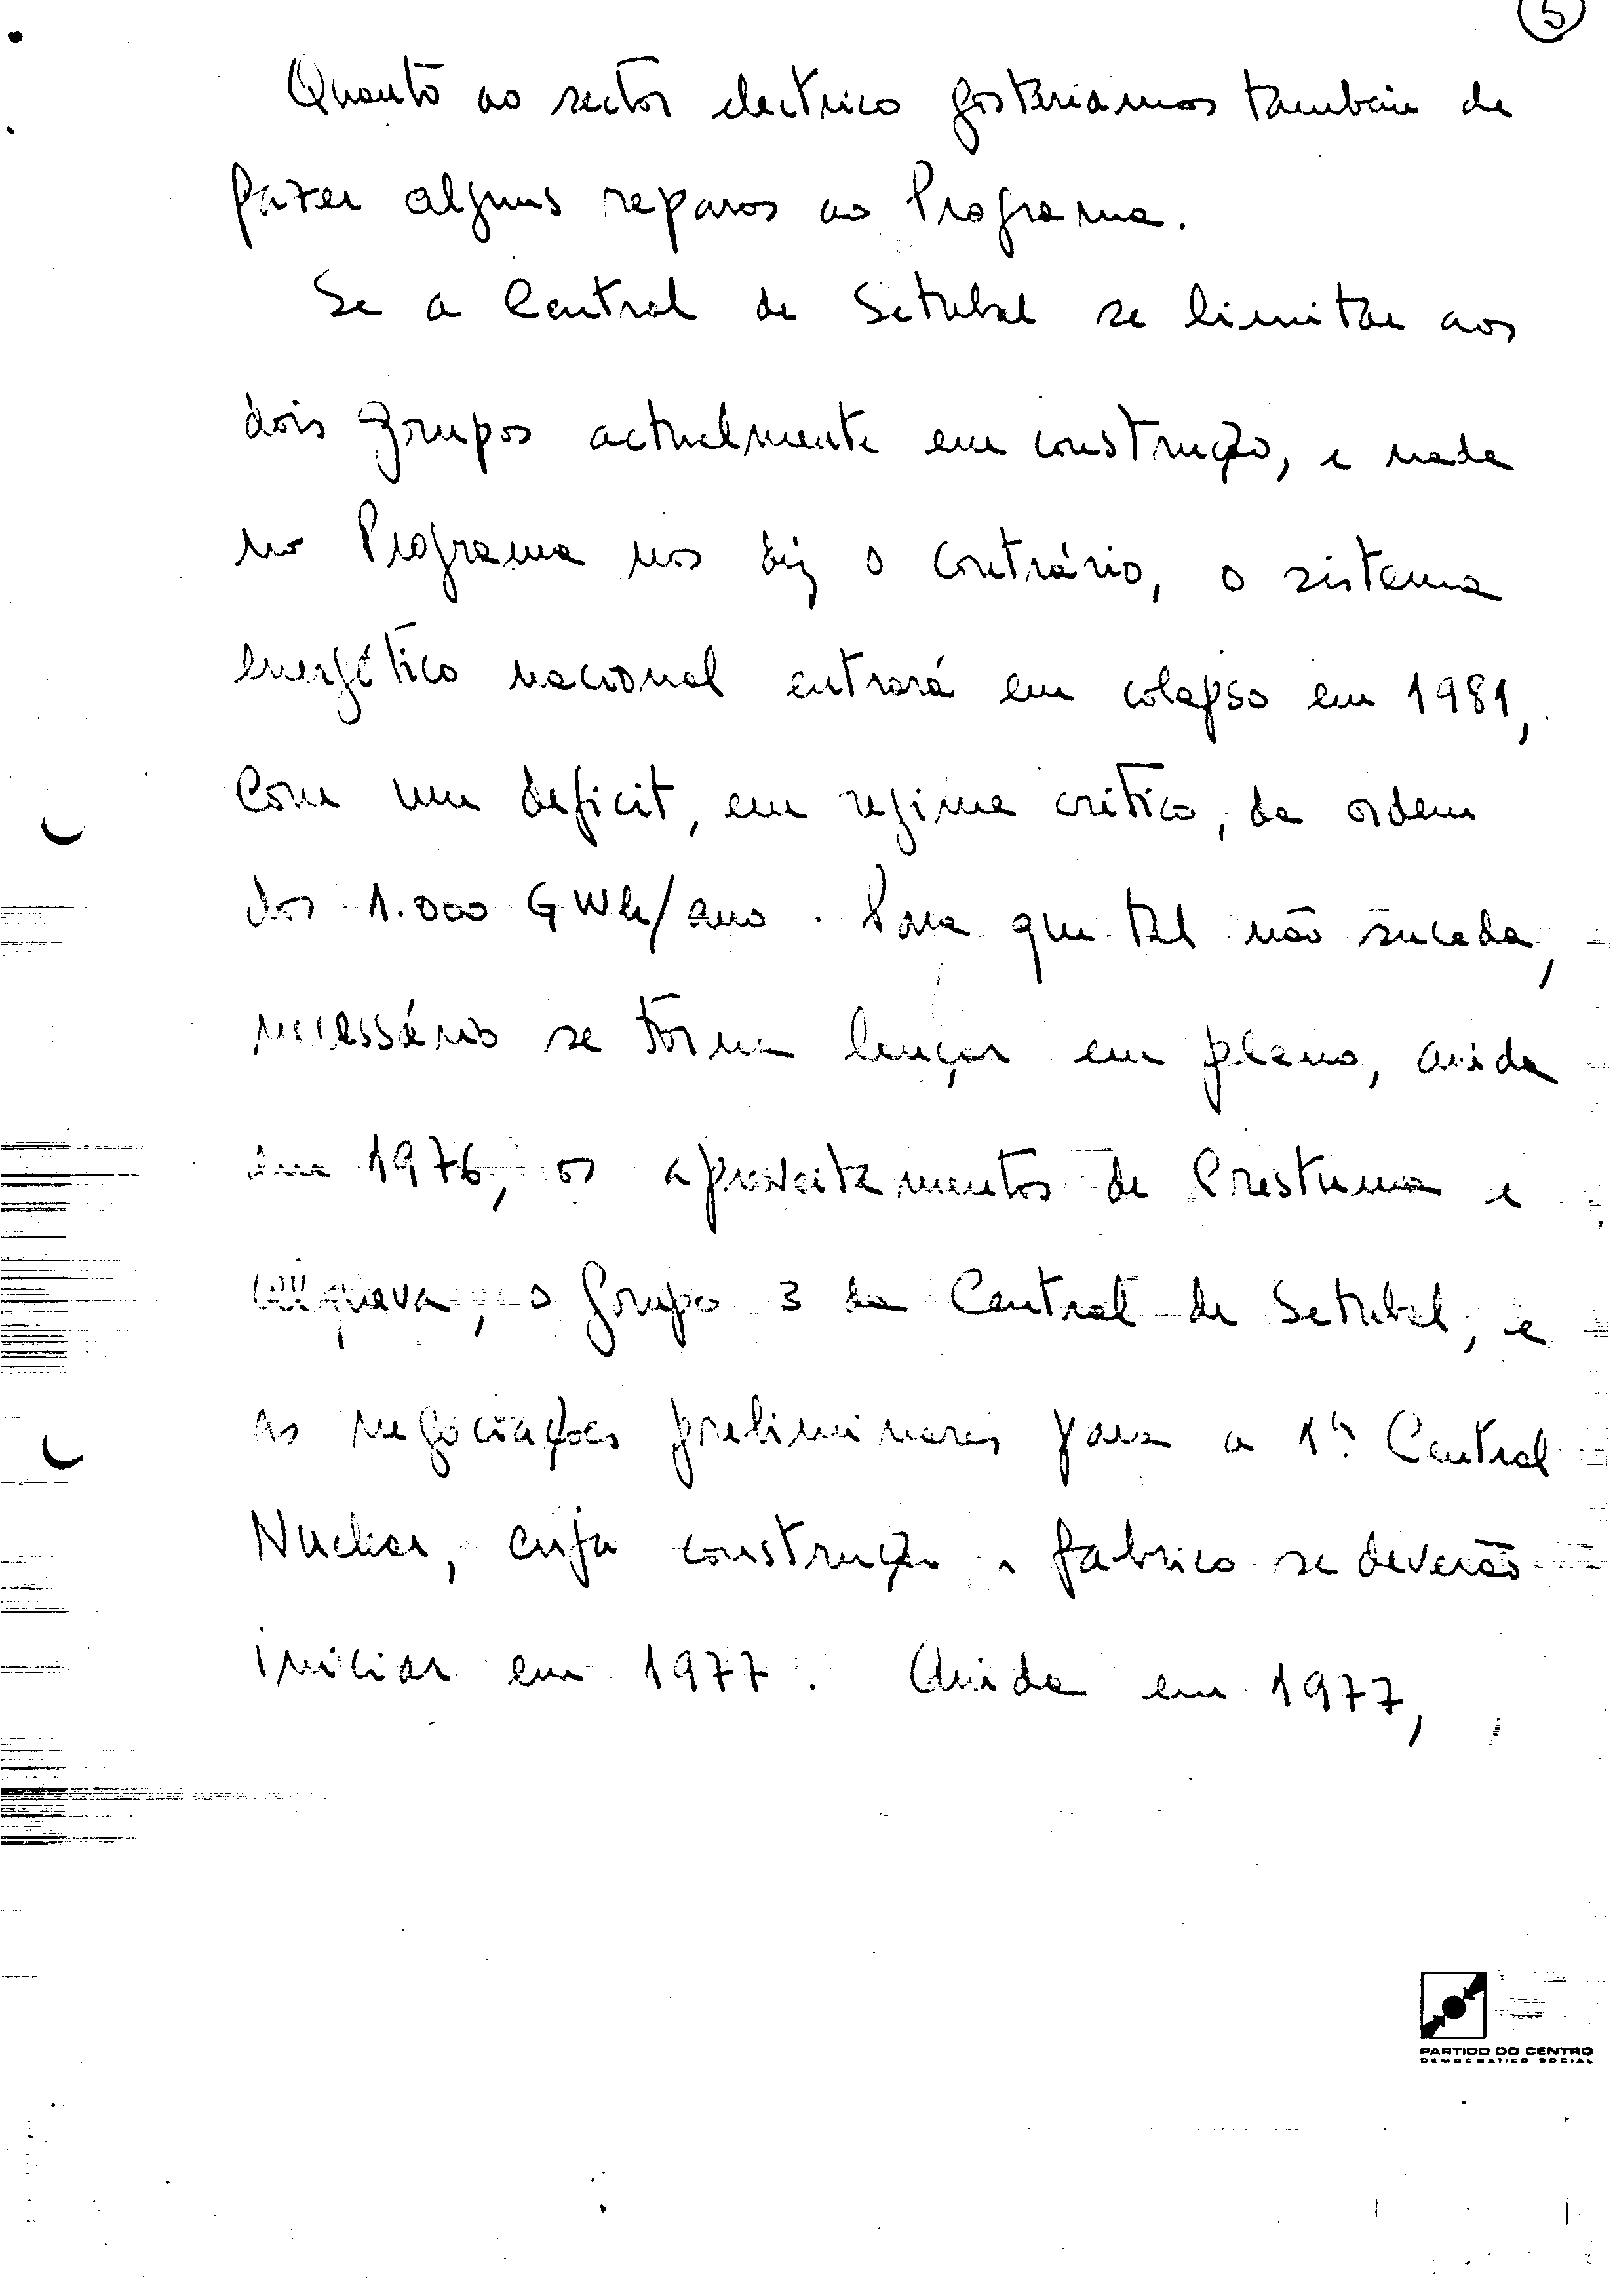 5
Quanto ao sector electrico gostariamos tambem de
fazer alguns reparos ao Programa.
Se a Central de Setubal se limitar aos
dois grupos actualmente em construção, e nada
no Programa nos diz o contrário, o sistema
energético nacional entrará em colapso em 1981,
com um deficit, em regime critico, da ordem
dos 1.000 GWh/ano. Para que tal não suceda,
necessário se torna lançar em pleno, ainda
em 1976, os aproveitamentos de Crestuma e
o Grupo 3 da Central de Setubal, e
as negociações preliminares para a 1ª Central
Nuclear, cuja construção e fabrico se deverão
iniciar em 1977. Ainda em 1977,
PARTIDO DO CENTRO
DEMOCRATICO SOCIAL